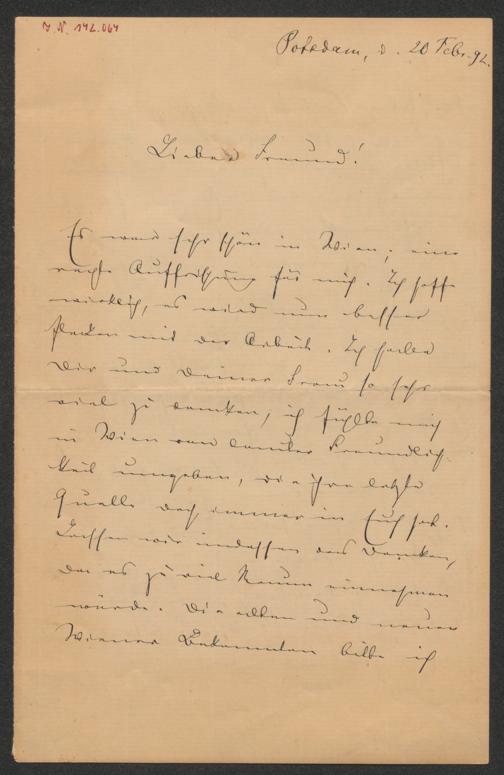 J.N. 142.064
Potsdam, d. 20 Febr. 92.
Lieber Freund!
Es war sehr schön in Wien; eine
rechte Auffrischung für mich. Ich hoffe
wirklich, es wird nun besser
flecken mit der Arbeit. Ich habe
Dir und Deiner Frau so sehr
viel zu danken, ich fühlte mich
in Wien von lauter Freundlich-
keit umgeben, die ihre letzte
Quelle doch immer in Euch hat.
Lassen wir indessen das Danken,
da es zu viel Raum einnehmen
würde. Die alten und neuen
Wiener Bekannten bitte ich